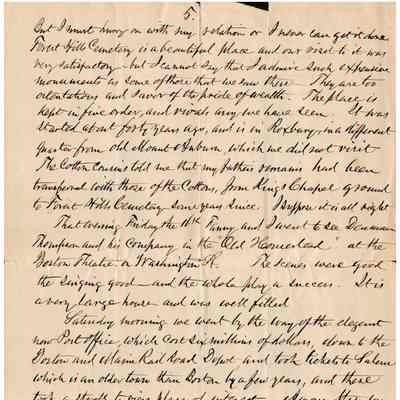 5.
But I must hurry on with my relation or I never can get it done
Forest Hills Cemetery is a beautiful place and our visit to it was
very satisfactory - but I cannot say that I admire such expensive
monuments as some of those that we saw there. They are too
ostentatious and savor of the pride of wealth. The place is
kept in fine order, and rivals any we have seen. It was
started about forty years ago, and is in Roxbury, in a different
quarter from old Mount Auburn which we did not visit
The Cotton cousins told me that my father's remains had been
transferred with those of the Cottons, from King's Chapel ground
to Forest Hills Cemetery some years since. I suppose it is all right
That evening Friday the 16th Fanny and I went to see Denman
Thompson and his company in the "Old Homestead" at the
Boston Theatre on Washington St. The scenes were good
the singing good - and the whole play a success. It is
a very large house and was well filled
Saturday morning we went by the way of the elegant
new Post office, which cost six millions of dollars, down to the
Boston and Maine Rail Road Depot and took tickets to Salem
which is an older town than Boston by a few years, and there
took a